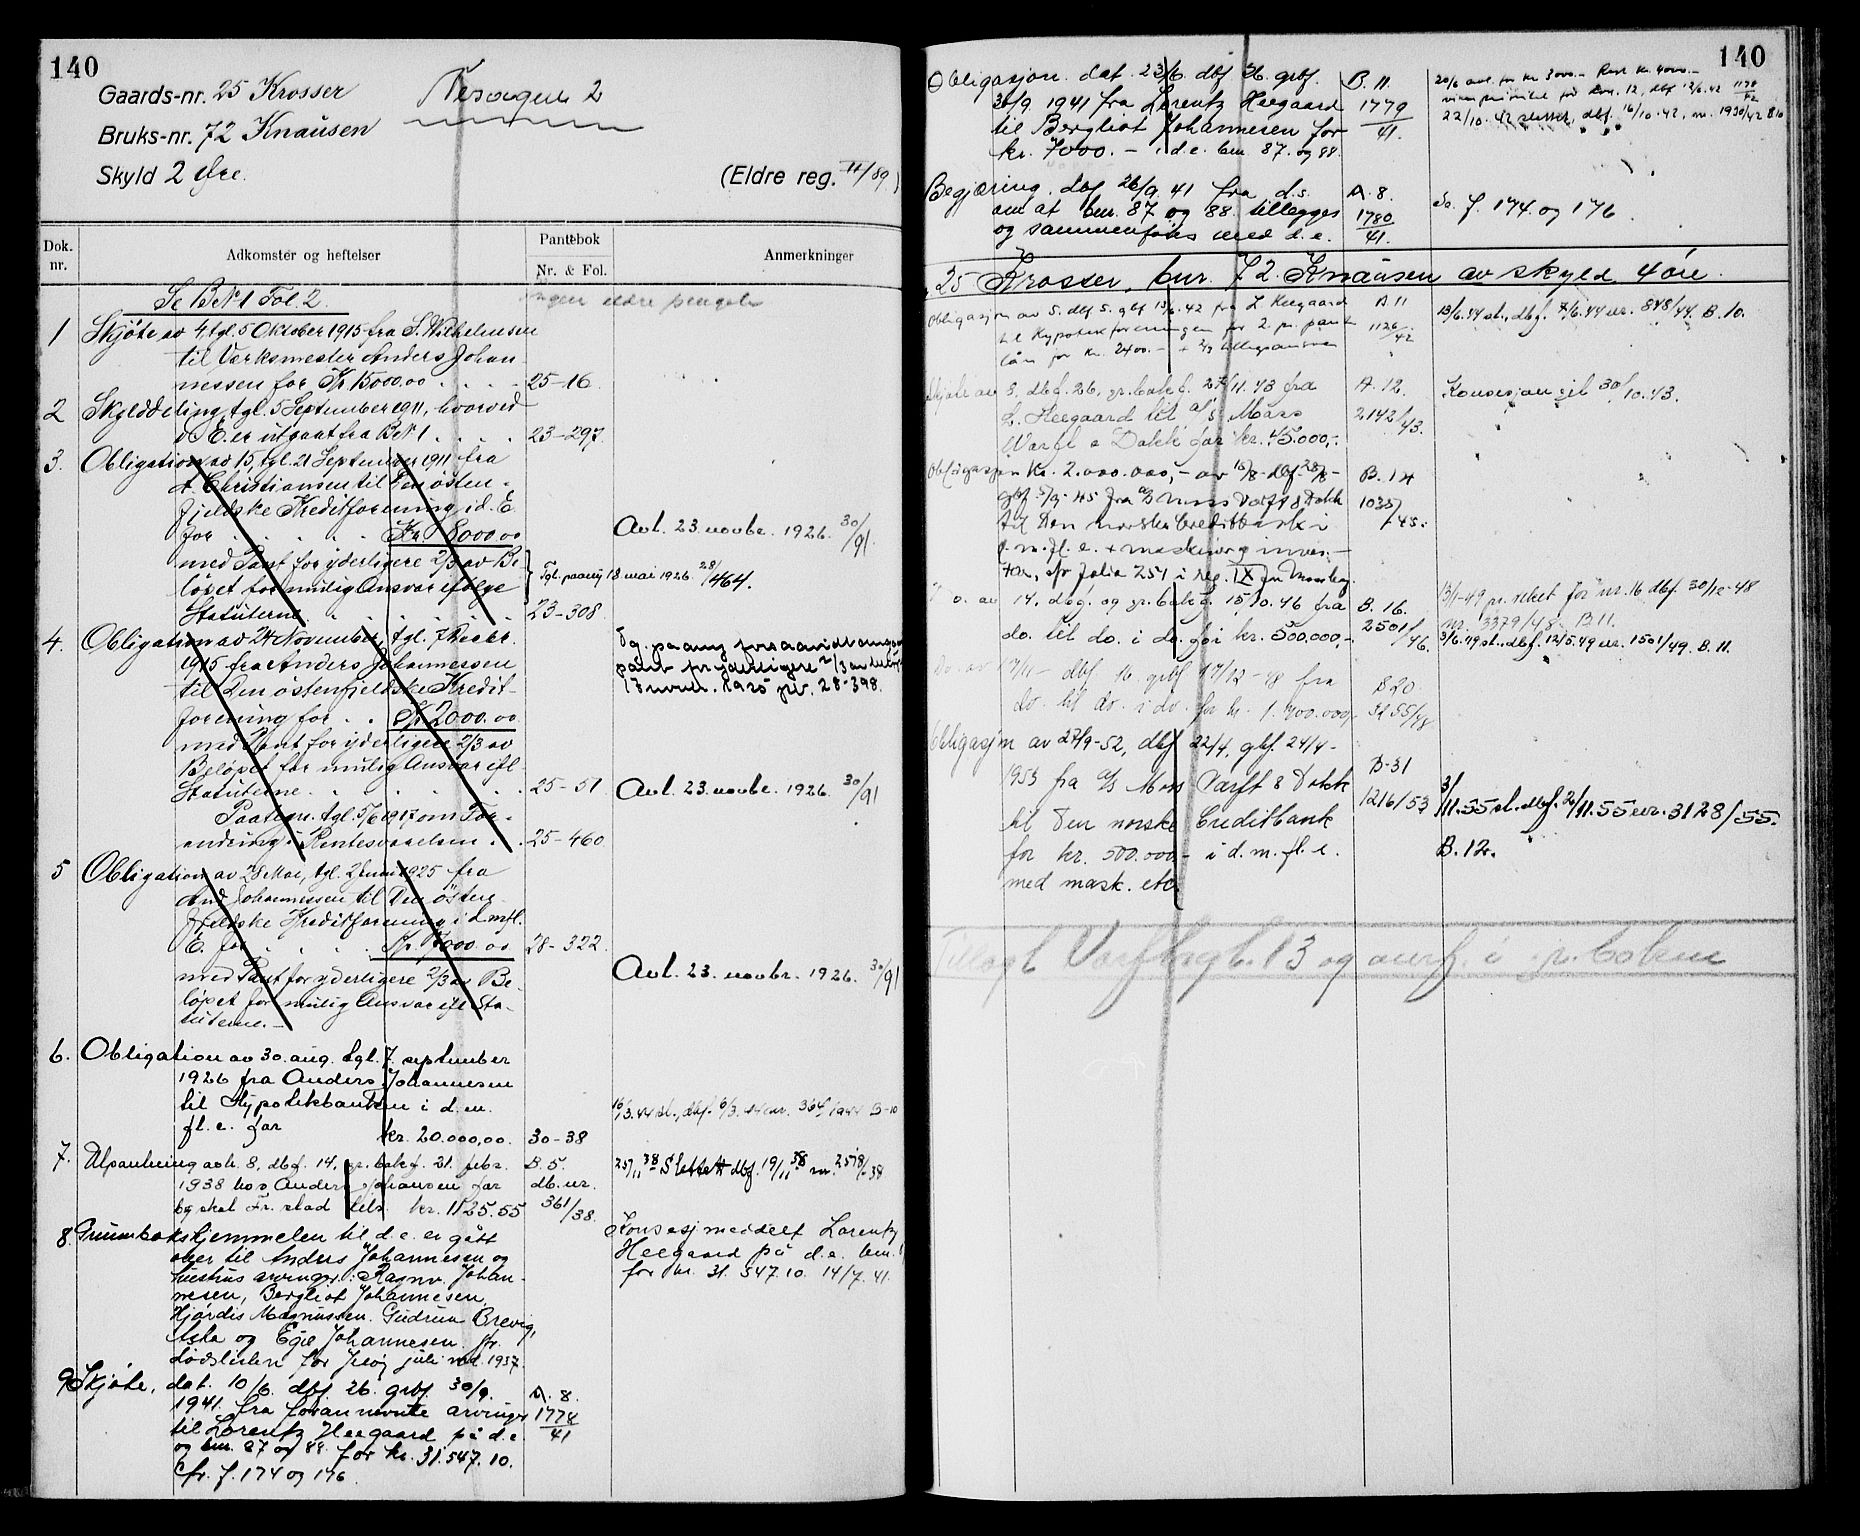 140
Gaards-nr. 25 Krosser
Bruks-nr. 72 Knausen
Skyld 2 Øre.
(Eldre reg. II/89)
Dok. nr.
Adkomster og heftelser
Pantebok
Nr. & Fol.
Anmerkninger
Se BNr 1 Fol. 2.
1 Skjöte av 4, tgl. 5 Oktober 1915 fra S. Wilhelmsen
til Værksmester Anders Johan-
nessen for Kr 15000.00 . . . . 25-16
2 Skylddeling, tgl. 5 September 1911, hvorved
d. E. er utgaat fra BNr 1 . . . . 23-297
3. Obligation av 15, tgl. 21 September 1911 fra
A. Christiansen til Den østen-
fjeldske Kreditforening i d. E.
for . . . . . Kr. 8000.00
Avl. 23. novbr. 1926. 30/91.
med Pant for yderligere 2/3 av Be-
Tgl. paany 18 mai 1926 28/464.
løpet for mulig Ansvar ifølge
Statuterne . . . . . 23-308
4. Obligation av 24 November, tgl. 7 Decbr.
1915 fra Anders Johannessen
til Den østenfjeldske Kredit-
forening for . . Kr. 2000.00
med Pant for yderligere 2/3 av
Beløpet for mulig Ansvar ifl.
Statuterne . . . . . 25-51
Avl. 23. novbr. 1926. 30/91
Paategn. tgl. 5/6 1917 om For-
andring i Rentesvarelsen . . 25-460
5 Obligation av 28 Mai, tgl. 2 Juni 1925 fra
And. Johannessen til Den østen-
fjeldske Kreditforening i d. m. fl.
E. for . . . . Kr. 7000.00 28-322
Avl. 23. novbr. 1926. 30/91
med Pant for yderligere 2/3 av Be-
løpet for mulig Ansvar ifl. Sta-
tuterne.
6. Obligation av 30. aug. tgl. 7. september
1926 fra Anders Johannesen
til Hypotekbanken i d. m.
fl. e. for kr. 20.000,00. 30-38
7. Utpantning avh. 8, dbf. 14, gr. bokf. 21. febr. B. 5.
1938 hos Anders Johansen for db. nr.
kr. 1125.55 361/38.
25/11 38 Slettet dbf. 19/11 38 nr. 2578/38
8. Grunnbokshjemmelen til d. e. er gått
over til Anders Johannesen og
hustrus arvinger: Ragnv. Johan-
nesen, Bergliot Johannesen,
Hjørdis Magnussen, Gudrun Brevig,
Asta og Egil Johannesen.
Konsesj. meddelt Lorentz
Heegaard på d. e. bnr.
for kr. 31.547.10. 14/7. 41.
9 Skjøte, dat. 10/6. dbf. 26. grbf. 30/9. A. 8.
1941. fra forannevnte arvinger 1778/41
til Lorentz Heegaard på d. e.
og bnr. 87 og 88 for kr. 31.547.10.
Cfr. f. 174 og 176.
140
Obligasjon. dat. 23/6. dbf 26. grbf. B. 11.
30/9. 1941 fra Lorentz Heegaard 1779/41.
til Bergliot Johannesen for
kr. 7000.- i d. e. bnr. 87. og 88.
Begjæring, dbf 26/9. 41 fra d. s. A. 8.
om at bnr. 87 og 88 tillegges 1780/41.
og sammenføies med d. e.
Se f. 174 og 176.
25 Krosser, bnr. 72. Knausen av skyld 4 øre.
til Hypotekforeningen for 2. pr. pant 1126/42
lån for kr. 2400.-
13/6. 44 sl., dbf. 7/6. 44 nr. 848/44. B. 10.
Skjøte av 8, dbf. 26, gr. bokf. 27/11. 43 fra A. 12.
L. Heegaard til A/S Moss 2142/43.
Værft & Dokk for kr. 45.000,-.
Konsesjon git 30/10. 43.
Obligasjon kr. 2.000.000,- av 15/8- dbf. 28/8- B. 14
grbf. 5/9- 45 fra A/S Moss Værft & Dokk 1035/45.
til Den norske Creditbank i
d. m. fl. e. + maskiner og inven-
tar, cfr folio 251 i reg. IX for Mossby.
Do. av 14, dbf. og gr. bokf. 15/10. 46 fra B. 16.
do. til do. i do. for kr. 500.000,-. 2501/46.
13/1-49 pr. veket for nr. 16 dbf. 30/12-48
nr. 3379/48. B 11.
3/6. 49 sl., dbf. 12/5. 49 nr. 1501/49. B. 11.
Do. av 17/11- dbf 16. grbf 17/12-48 fra B 20
do. til do. i do. for kr. 1.400.000,- 3255/48
Obligasjon av 27/9-52, dbf 22/4, gbf. 24/4- B-31
1953 fra A/S Moss Værft & Dokk 1216/53
til Den norske Creditbank
for kr. 500.000,- i d. m. fl. e.
med mask. etc.
3/11. 55 sl. dbf. 2/11. 55 nr. 3128/55.
B. 12.
Tillagt Værftsgt. 13 og overf. i gr. boken